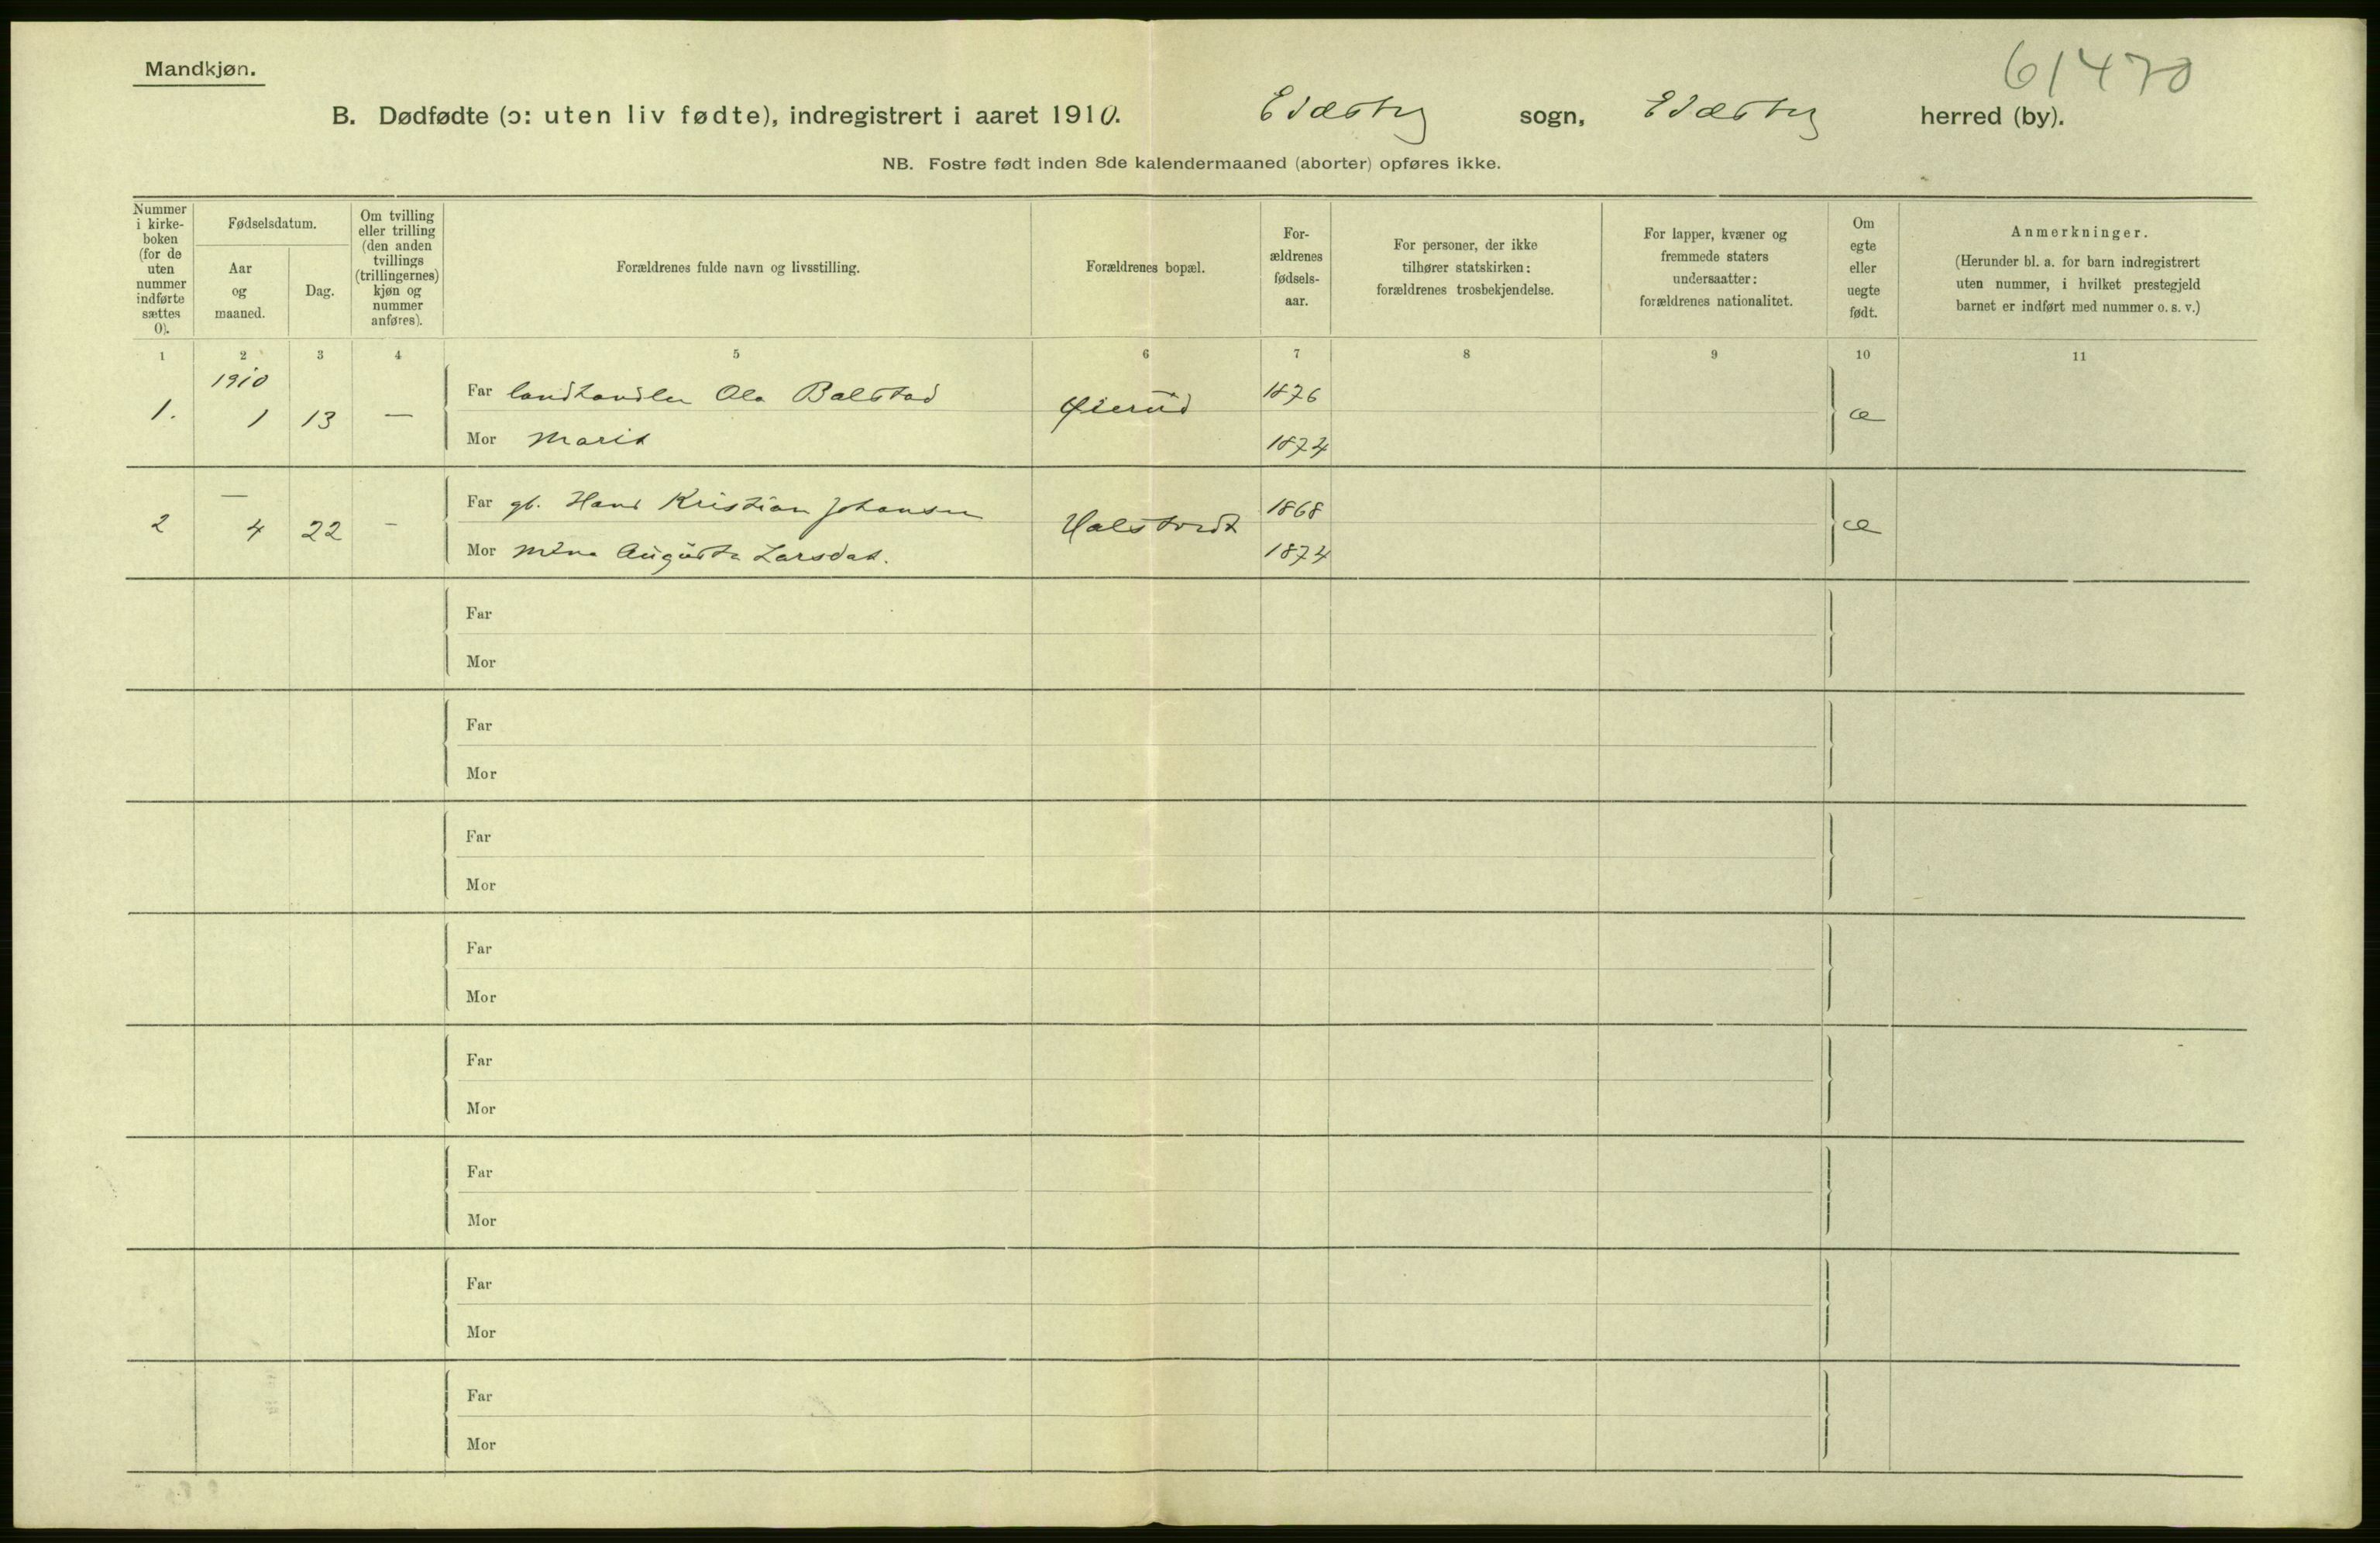 Mandkjøn.
61470
B. Dødfødte (ɔ: uten liv fødte), indregistrert i aaret 1910. Eidsberg sogn, Eidsberg herred (by).
NB. Fostre født inden 8de kalendermaaned (aborter) opføres ikke.
Nummer
i kirke-
boken
(for de
uten
nummer
indførte
sættes
0).
Fødselsdatum.
Aar
og
maaned.
Dag.
Om tvilling
eller trilling
(den anden
tvillings
(trillingernes)
kjøn og
nummer
anføres).
Forældrenes fulde navn og livsstilling.
Forældrenes bopæl.
For-
ældrenes
fødsels-
aar.
For personer, der ikke
tilhører statskirken:
forældrenes trosbekjendelse.
For lapper, kvæner og
fremmede staters
undersaatter:
forældrenes nationalitet.
Om
egte
eller
uegte
født.
Anmerkninger.
(Herunder bl. a. for barn indregistrert
uten nummer, i hvilket prestegjeld
barnet er indført med nummer o. s. v.)
1 2 3 4 5 6 7 8 9 10 11
1910
Far landhandler Ola Balstad 1876
1. 1 13 — Øierud æ
Mor Marit 1874
—
Far gb. Hans Kristian Johansen 1868
2 4 22 - æ
Mor Mina Augusta Larsdat. 1874
Far
Mor
Far
Mor
Far
Mor
Far
Mor
Far
Mor
Far
Mor
Far
Mor
Far
Mor